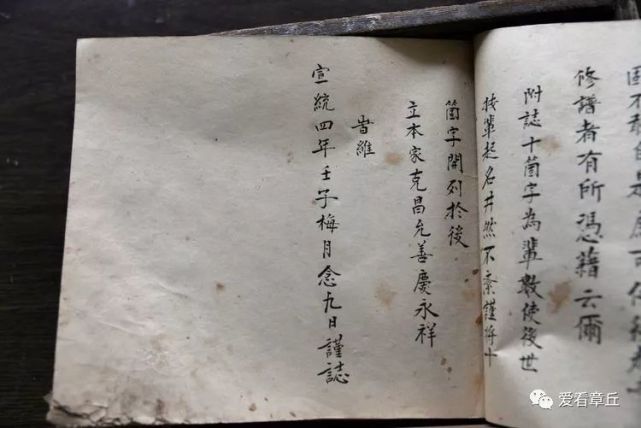 修譜者有所憑藉云爾
附誌十箇字為輩數使後世
按輩起名井然不紊謹將十
箇字開列於後
立本家克昌允善慶永祥
旹維
宣統四年壬子梅月念九日謹誌
爱看章丘